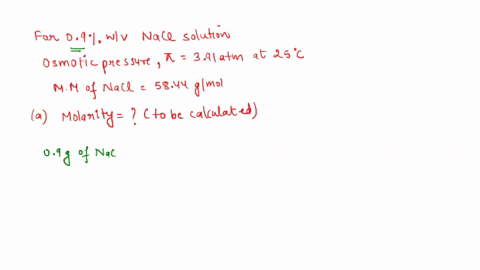 For 0.9% w/v NaCl solution
Osmotic pressure, π = 3.91 atm at 25°C
M.M of NaCl = 58.44 g/mol
(a) Molarity = ? (to be calculated)
0.9g of NaC